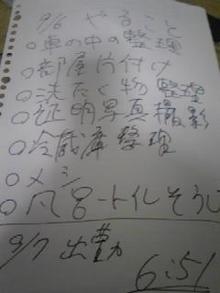 9/6 やること
○車の中の整理
○部屋片付け
○洗たく物 整理
○証明写真撮影
○冷蔵庫整理
○メシ
○風呂トイレそうじ
9/7 出勤
6:51